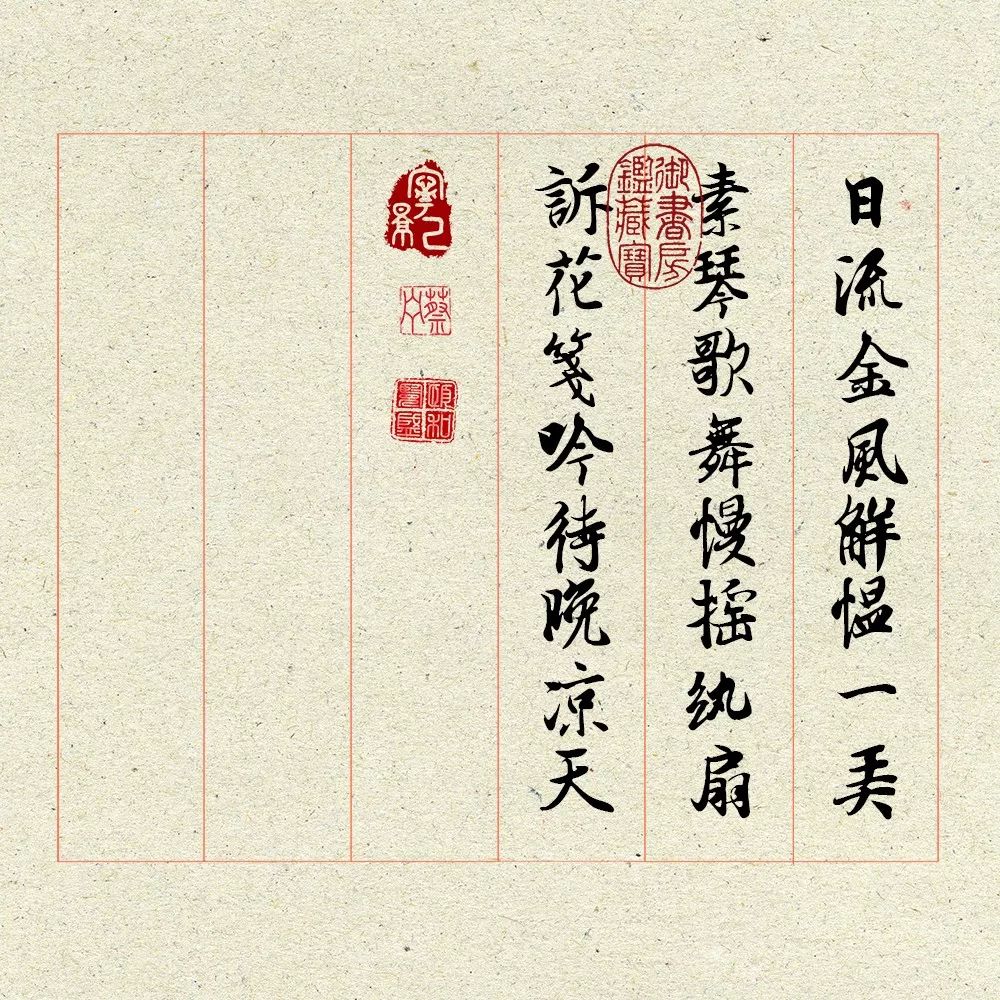 日流金風解愠一弄
素琴歌舞慢摇紈扇
訴花箋吟待晚凉天
御書房鑑藏寶